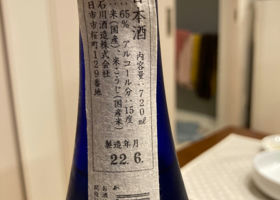 日本酒
内容量:720ml
65% アルコール分:15度
米(国産)、米こうじ(国産米)
石川酒造株式会社
日市市桜町129番地
製造年月
22.6.
お酒